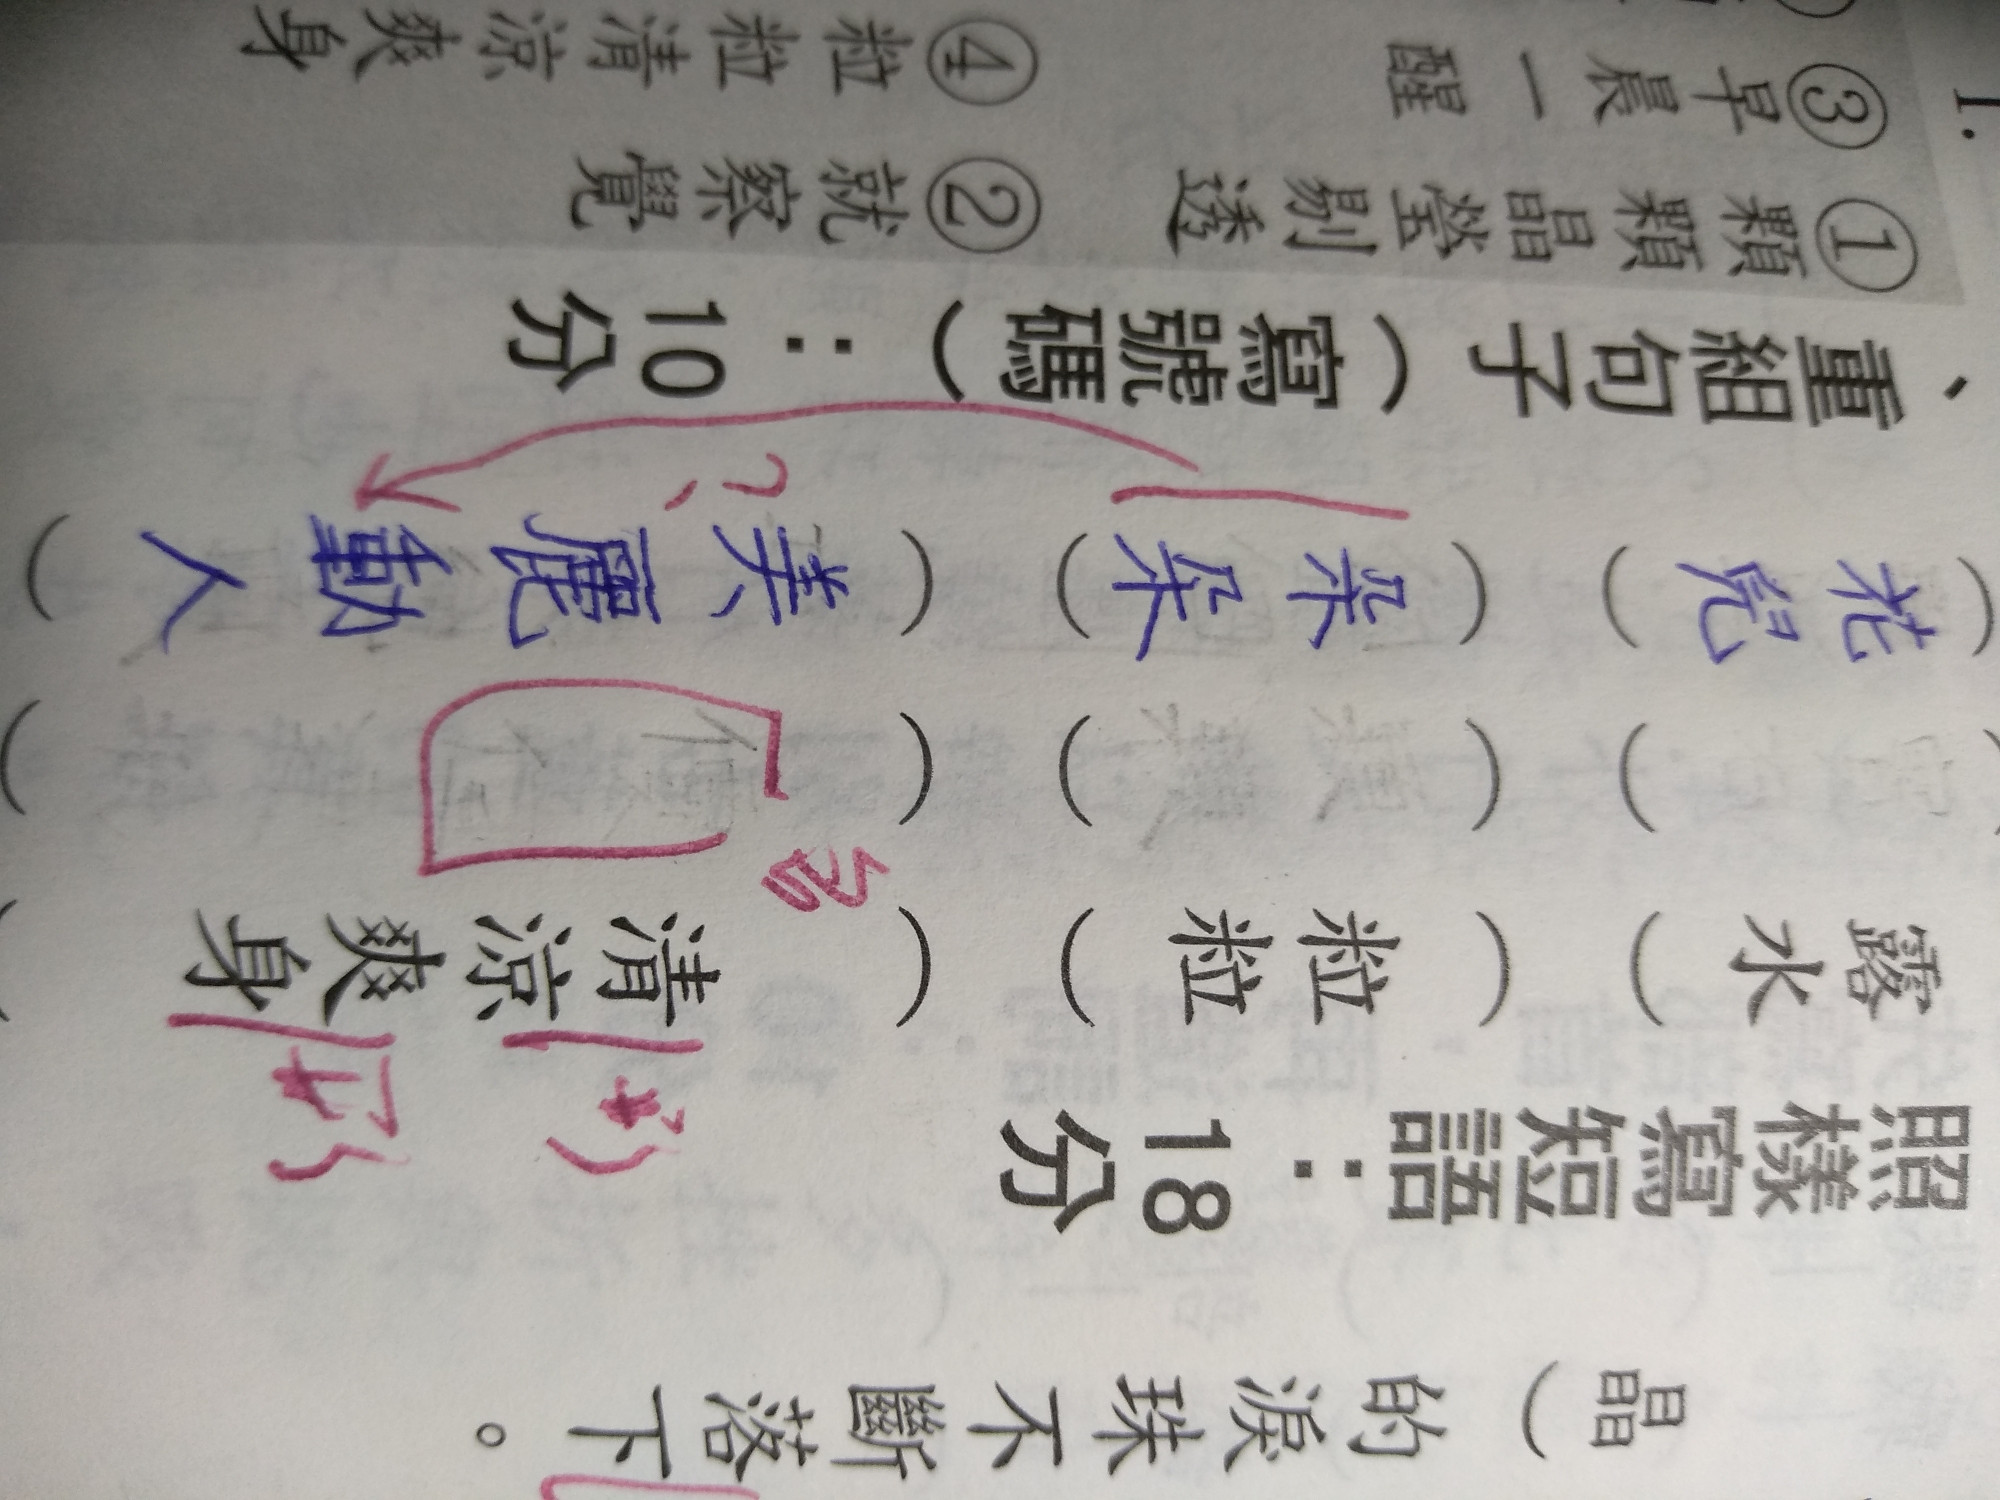 晶）的淚珠不斷落下。
照樣寫短語：18分
露水）（粒粒）（清涼爽身
（花兒）（朵朵）（美麗動人）
、重組句子（寫號碼）：10分
①顆顆晶瑩剔透 ②就察覺
1. ③早晨一醒 ④粒粒清涼爽身